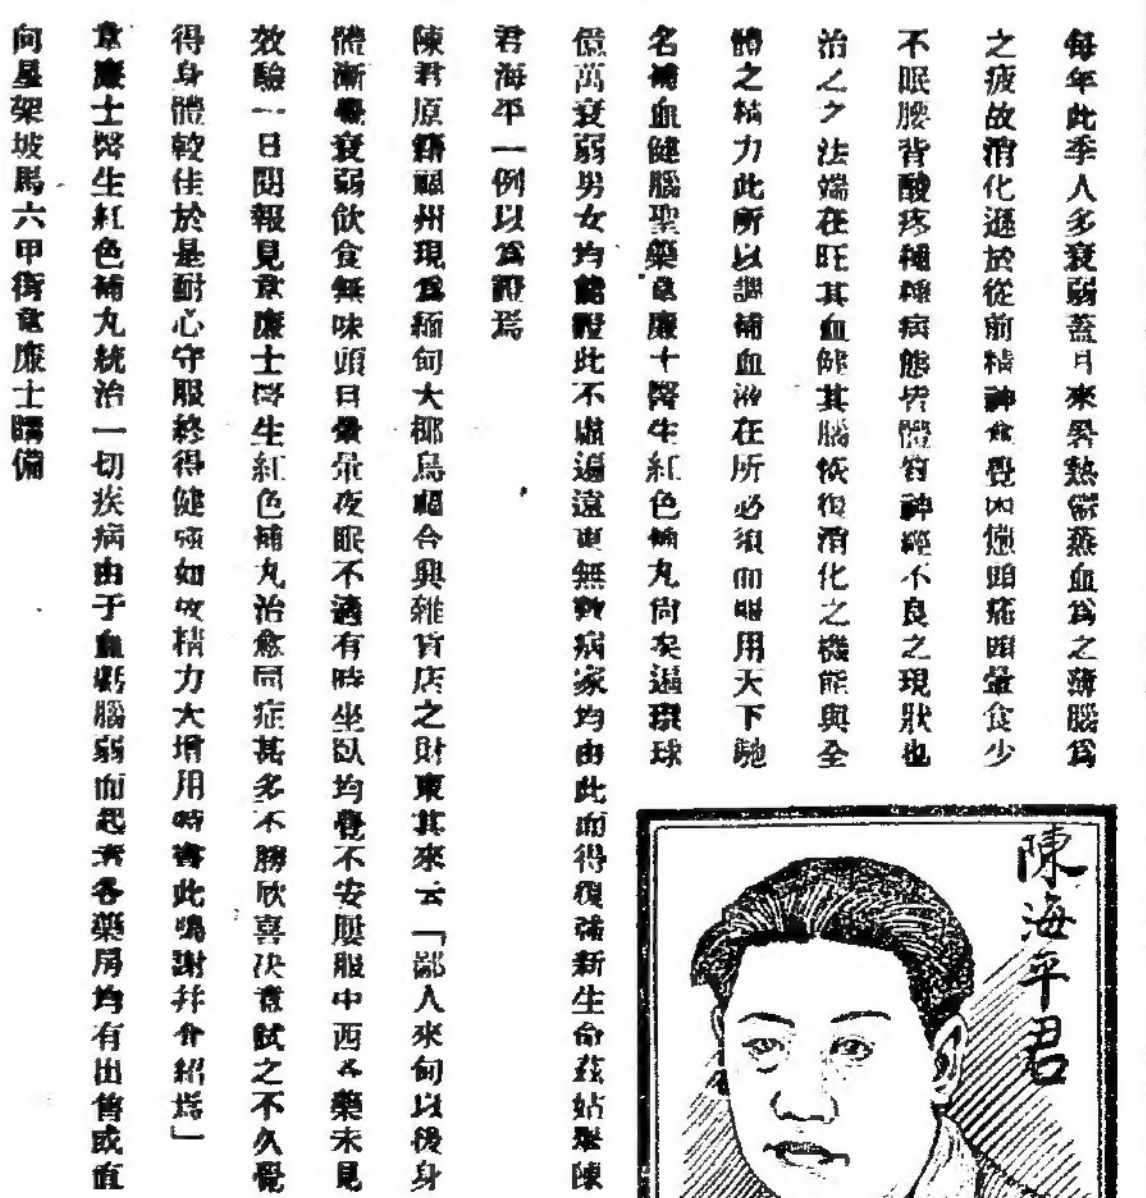 每年此季人多衰弱蓋日來暑熱鬱蒸血爲之薄腦爲
之疲故消化遜於從前精神食覺困憊頭痛頭暈食少
不眠腰背酸疼種種病態皆體質神經不良之現狀也
治之之法端在旺其血健其腦恢復消化之機能與全
體之精力此所以調補血液在所必須而服用天下馳
名補血健腦聖藥韋廉士醫生紅色補丸尙矣遍環球
億萬衰弱男女均能證此不虛遍遠東無數病家均由此而得復強新生命茲姑舉陳
君海平一例以爲證焉
陳君原籍福州現爲緬甸大椰烏福合興雜貨店之財東其來云「鄙人來甸以後身
體漸覺衰弱飲食無味頭目暈暈夜眠不適有時坐臥均覺不安屢服中西各藥未見
效驗一日閱報見韋廉士醫生紅色補丸治愈同症甚多不勝欣喜决意試之不久覺
得身體較佳於是耐心守服終得健碩如故精力大增用特書此鳴謝幷介紹焉」
韋廉士醫生紅色補丸統治一切疾病由于血虧腦弱而起者各藥房均有出售或直
向星架坡馬六甲街韋廉士購備
陳海平君